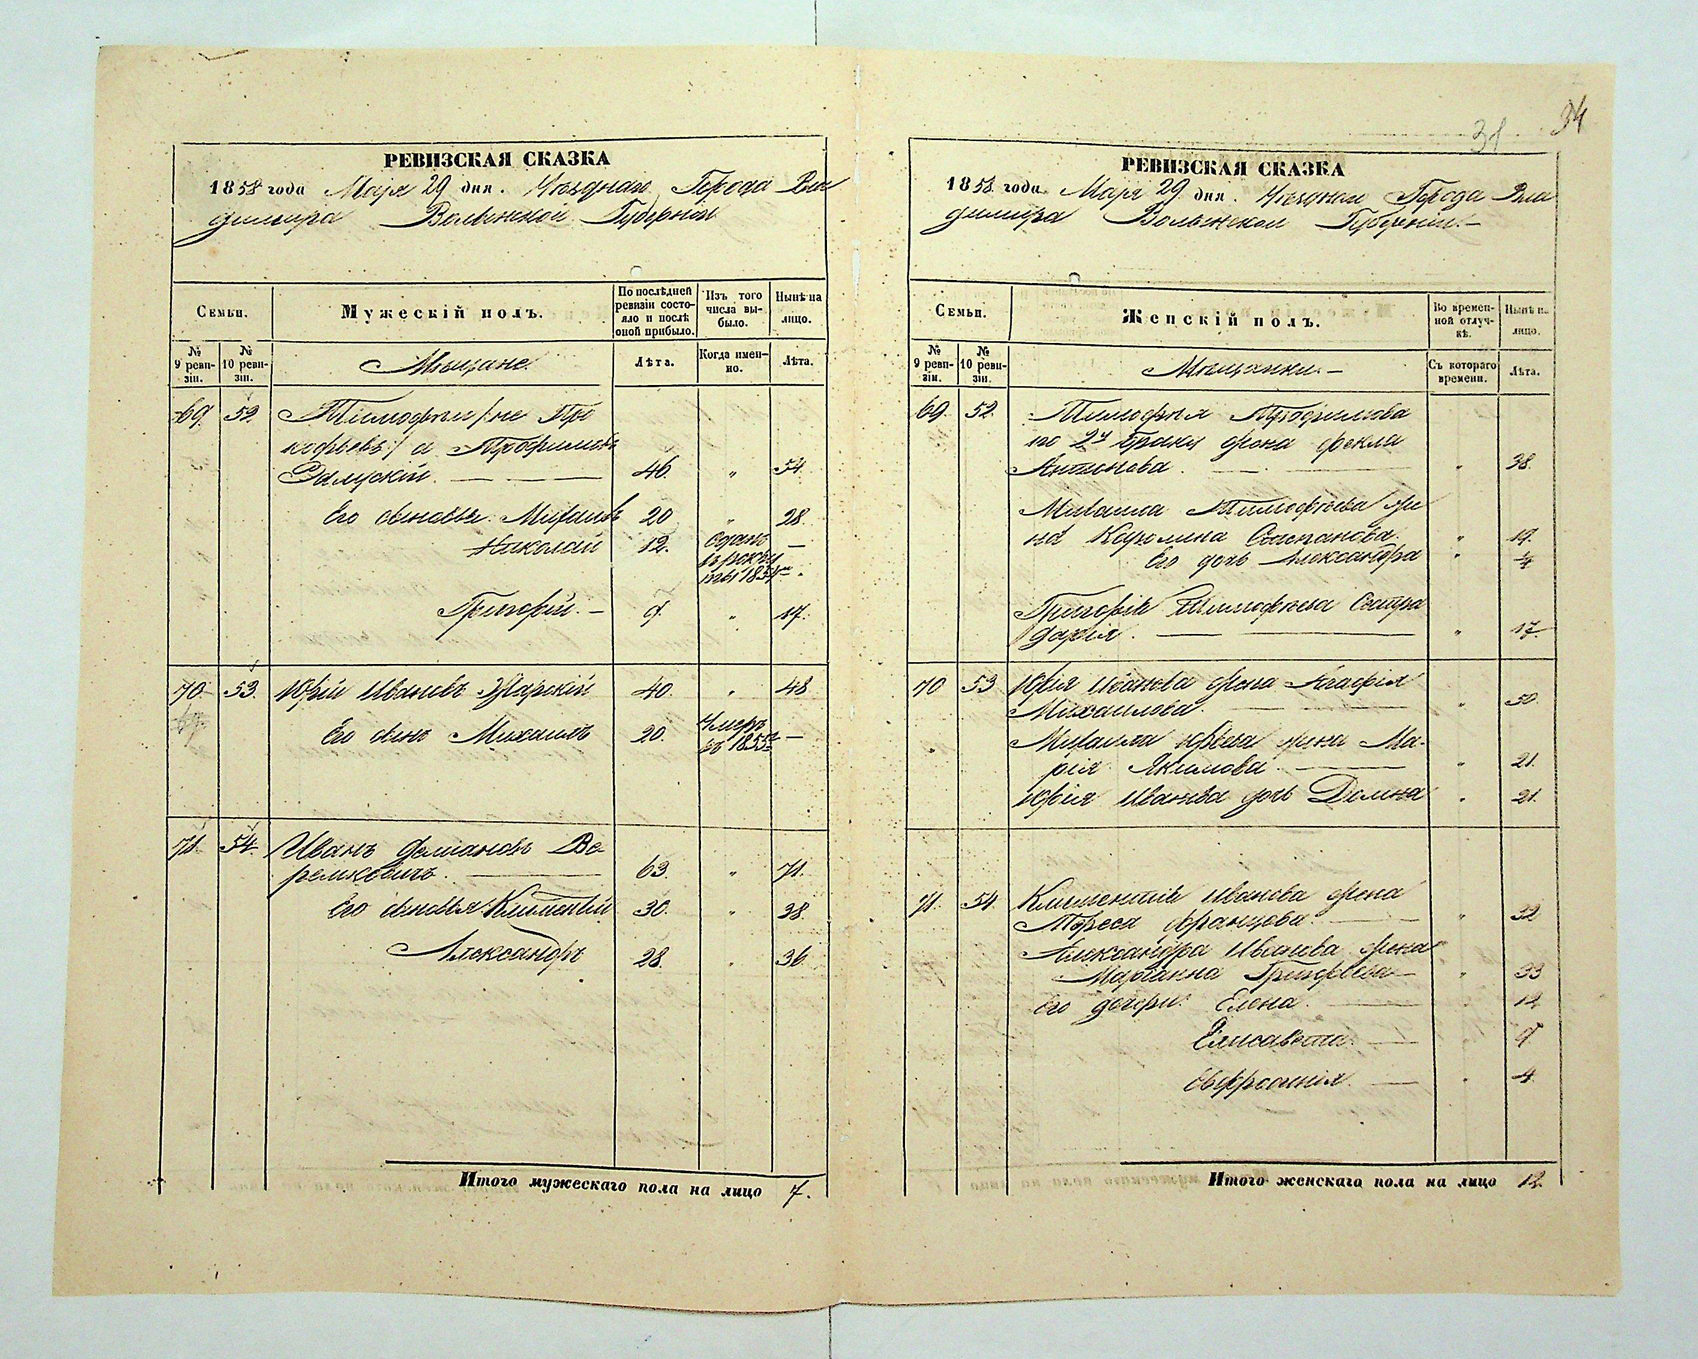 34
31
РЕВИЗСКАЯ СКАЗКА
1858 года Мая 29 дня. Уѣзднаго Города Вла
димира Волынской Губерніи
Семьи.
Мужескій полъ.
По послѣдней ревизіи состояло и послѣ оной прибыло.
Изъ того числа выбыло.
Нынѣ на лицо.
№ 9 ревизіи.
№ 10 ревизіи.
Мѣщане.
Лѣта.
Когда именно.
Лѣта.
69. 52. Тимофѣй /не Про
кофьевъ/ а Трофимовъ
46. " 54.
Его сыновья. Михаилъ 20 " 28.
Николай 12. Отданъ —
въ рекру
ты 1854 г.
Григорій. — 9. " 17.
70. 53. Юрій Ивановъ 40. " 48
Его сынъ Михаилъ 20. Умеръ —
въ 1855 г.
71. 54. Иванъ Демяновъ Ве
ремковичъ. 63. " 71.
Его сыновья Климентій 30. " 38.
Александръ 28. " 36.
Итого мужескаго пола на лицо 7.
РЕВИЗСКАЯ СКАЗКА
1858 года Мая 29 дня. Уѣзднаго Города Вла
димира Волынской Губерніи. —
Семьи.
Женскій полъ.
Во временной отлучкѣ.
Нынѣ на лицо.
№ 9 ревизіи.
№ 10 ревизіи.
Мѣщанки. —
Съ котораго времени.
Лѣта.
69. 52. Тимофея Трофимова
по 2у браку жена Фекла
Антонова. — " 38.
Михаила Тимофеева же
на Каролина Степанова. " 19.
Его дочь Александра " 4
Григорія Тимофеева Сестра
Дарія. — " 17
70 53 Юрія Иванова жена Агафія
Михайлова. — " 50.
Михаила Юрьева жена Ма-
рія Якимова — " 21.
Юрія Иванова дочь Домна " 21.
71. 54. Климентія Иванова жена
Тереса Францова. — " 32
Александра Иванова жена
Маріанна Григорьева — " 33
Его дочери: Елена. — " 12
Елисавета. — 9
Евфросинія. — " 4.
Итого женскаго пола на лицо 12.